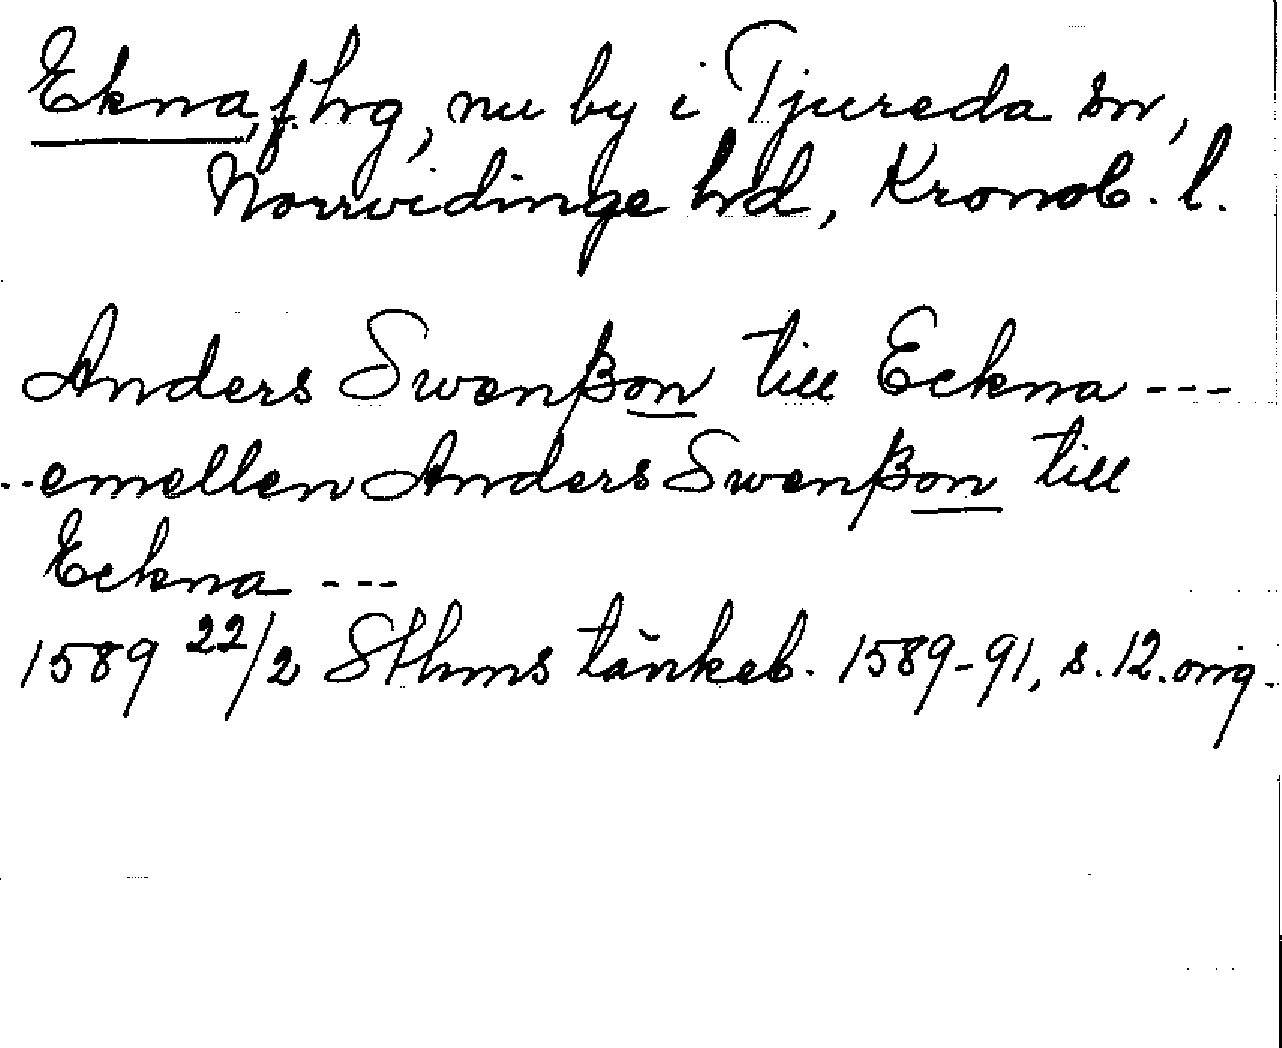 Ekna, f. hrg, nu by i Tjureda sn,
Norrvidinge hrd, Kronob. l.
Anders Swenßon till Eckna ---
--emellen Anders Swenßon till
Eckna ---
1589 22/2 Sthms tänkeb. 1589-91, s. 12. orig.